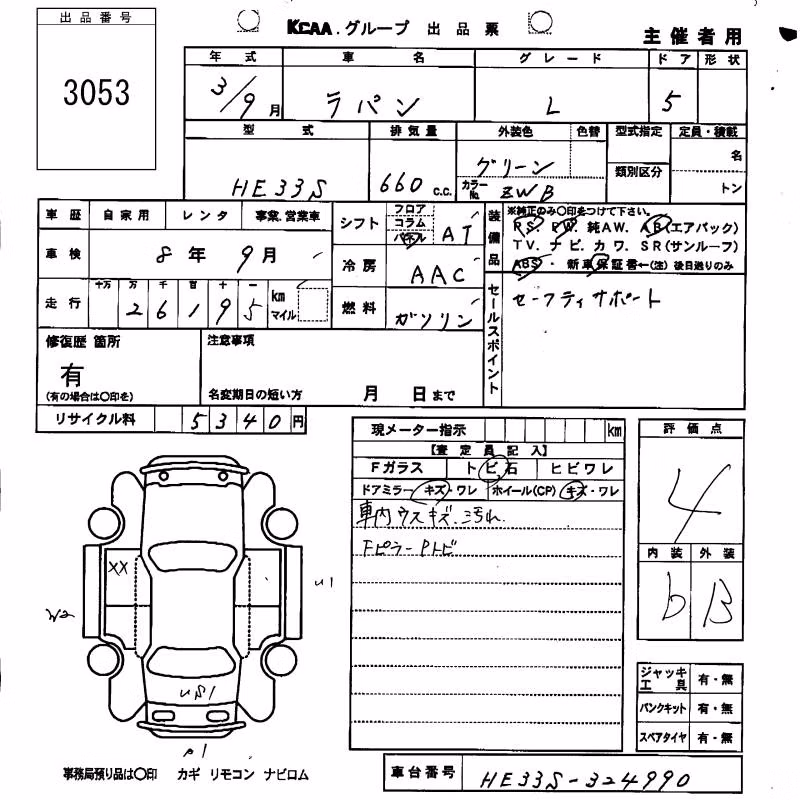 出品番号
3053
KCAA.グループ 出品票
主催者用
年式 車名 グレード ドア 形状
3/9月 ラパン L 5
型式 排気量 外装色 色替 型式指定 定員・積載
HE33S 660 c.c. グリーン 名
カラーNo. ZWB 類別区分 トン
車歴 自家用 レンタ 事業.営業車
車検 8年 9月
走行 十万 万 千 百 十 一
2 6 1 9 5 km マイル
シフト フロア コラム パネル AT
冷房 AAC
燃料 ガソリン
装備品
※純正のみ○印をつけて下さい。
PS. PW. 純AW. AB(エアバック)
TV. ナビ. カワ. SR(サンルーフ)
ABS・新車保証書←(注)後日送りのみ
セールスポイント
セーフティサポート
修復歴 箇所
有
(有の場合は○印を)
注意事項
名変期日の短い方 月 日まで
リサイクル料 5340円
現メーター指示 km
【査定員記入】
Fガラス トビ石 ヒビワレ
ドアミラー キズ・ワレ ホイール(CP) キズ・ワレ
車内ウスキズ.汚れ.
Fピラー Pトビ
評価点
4
内装 外装
b B
ジャッキ 工具 有・無
パンクキット 有・無
スペアタイヤ 有・無
XX
U1
W2
事務局預り品は○印 カギ リモコン ナビロム
車台番号 HE33S-324990